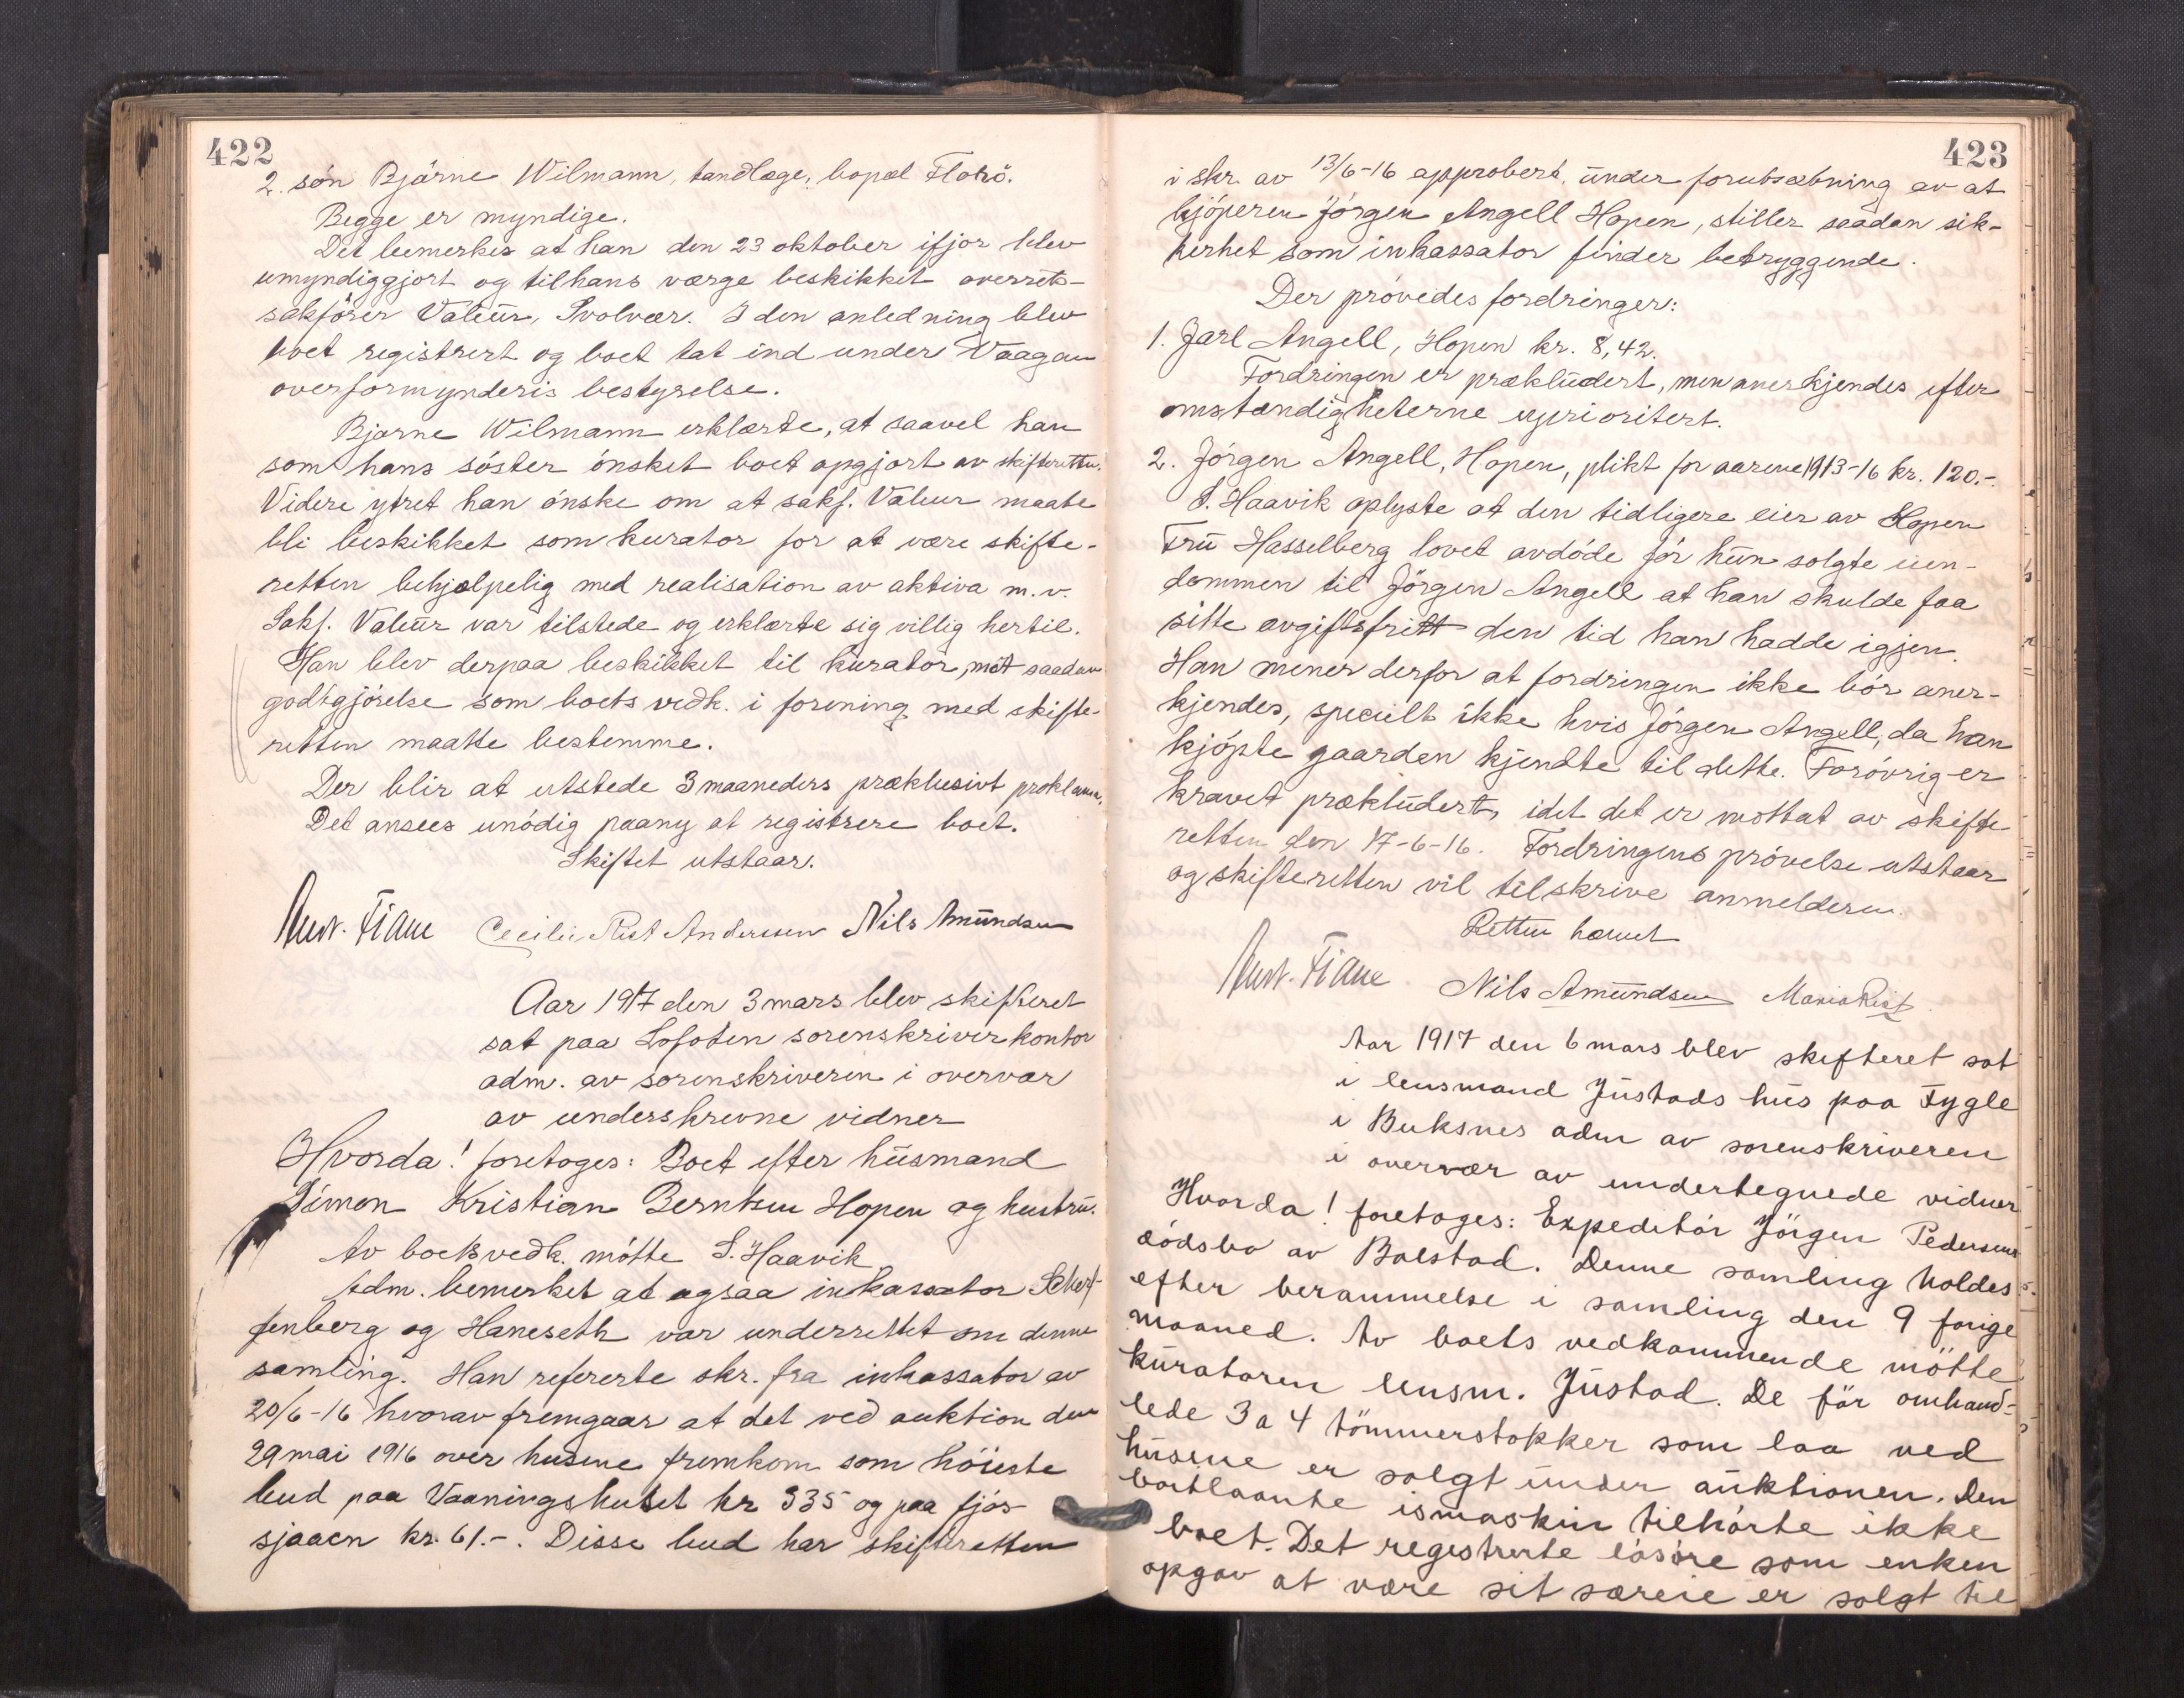 422
2. søn Bjarne Wilmann, tandlæge, bopæl Florö.
Begge er myndige.
Det bemerkes at han den 23 oktober ifjor blev
umyndiggjort og til hans værge beskikket overrets-
sakfører Valeur, Svolvær. I den anledning blev
boet registrert og boet tat ind under Vaagan
overformynderis bestyrelse.
Bjarne Wilmann erklærte, at saavel han
som hans søster ønsket boet opgjort av skifteretten.
Videre ytret han ønske om at sakf. Valeur maatte
bli beskikket som kurator for at være skifte-
retten behjælpelig med realisation av aktiva m.v.
Sakf. Valeur var tilstede og erklærte sig villig hertil.
Han blev derpaa beskikket til kurator, mot saadan
godtgjørelse som boets vedk. i forening med skifte-
retten maatte bestemme.
Der blir at utstede 3 maaneders præklusivt proklama.
Det ansees unødig paany at registrere boet.
Skiftet utstaar.
Cecilie Rist Andersen Nils Amundsen
Aar 1917 den 3 mars blev skifteret
sat paa Lofoten sorenskriverkontor
adm. av sorenskriveren i overvær
av underskrevne vidner
Hvorda! foretoges: Boet efter husmand
Simon Kristian Berntsen Hopen og hustru.
Av boets vedk. møtte S. Haavik
Adm. bemerket at ogsaa inkassator Schef-
fenberg og Haneseth var underrettet om denne
samling. Han refererte skr. fra inkassator av
20/6-16 hvorav fremgaar at det ved auktion den
29 mai 1916 over husene fremkom som høieste
bud paa Vaaningshuset kr 335 og paa fjøs-
sjaaen kr. 61.-. Disse bud har skifteretten
423
i skr. av 13/6-16 approbert under forutsætning av at
kjøperen Jørgen Angell Hopen, stiller saadan sik-
kerhet som inkassator finder betryggende.
Der prøvedes fordringer:
1. Jarl Angell, Hopen kr. 8,42.
Fordringen er prækludert, men anerkjendes efter
omstændigheterne uprioritert.
2. Jørgen Angell, Hopen, plikt for aarene 1913-16 kr. 120.-.
S. Haavik oplyste at den tidligere eier av Hopen
Fru Hasselberg lovet avdøde før hun solgte eien-
dommen til Jørgen Angell at han skulde faa
sitte avgiftsfritt den tid han hadde igjen.
Han mener derfor at fordringen ikke bør aner-
kjendes, specielt ikke hvis Jørgen Angell, da han
kjøpte gaarden kjendte til dette. Forøvrig er
kravet prækludert, idet det er mottat av skifte-
retten den 17-6-16. Fordringens prøvelse utstaar
og skifteretten vil tilskrive anmelderen.
Retten hævet
Nils Amundsen Maria Rist
Aar 1917 den 6 mars blev skifteret sat
i lensmand Justads hus paa Fygle
i Buksnes adm av sorenskriveren
i overvær av undertegnede vidner
Hvorda! foretoges: Expeditør Jörgen Pedersens
dødsbo av Balstad. Denne samling holdes
efter berammelse i samling den 9 forige
maaned. Av boets vedkommende møtte
kuratoren lensm. Justad. De før omhand-
lede 3 a 4 tømmerstokker som laa ved
husene er solgt under auktionen. Den
bortlaante ismaskin tilhørte ikke
boet. Det registrerte løsøre som enken
opgav at være sit særeie er solgt til